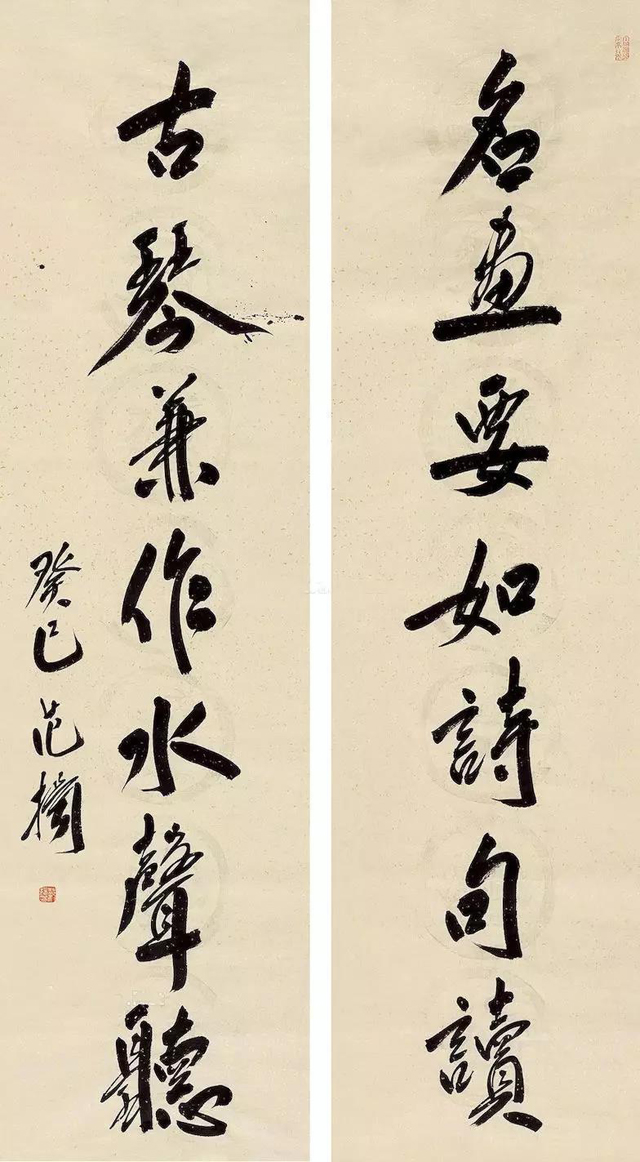 名畫要如詩句讀
古琴兼作水聲聽
癸巳范擴